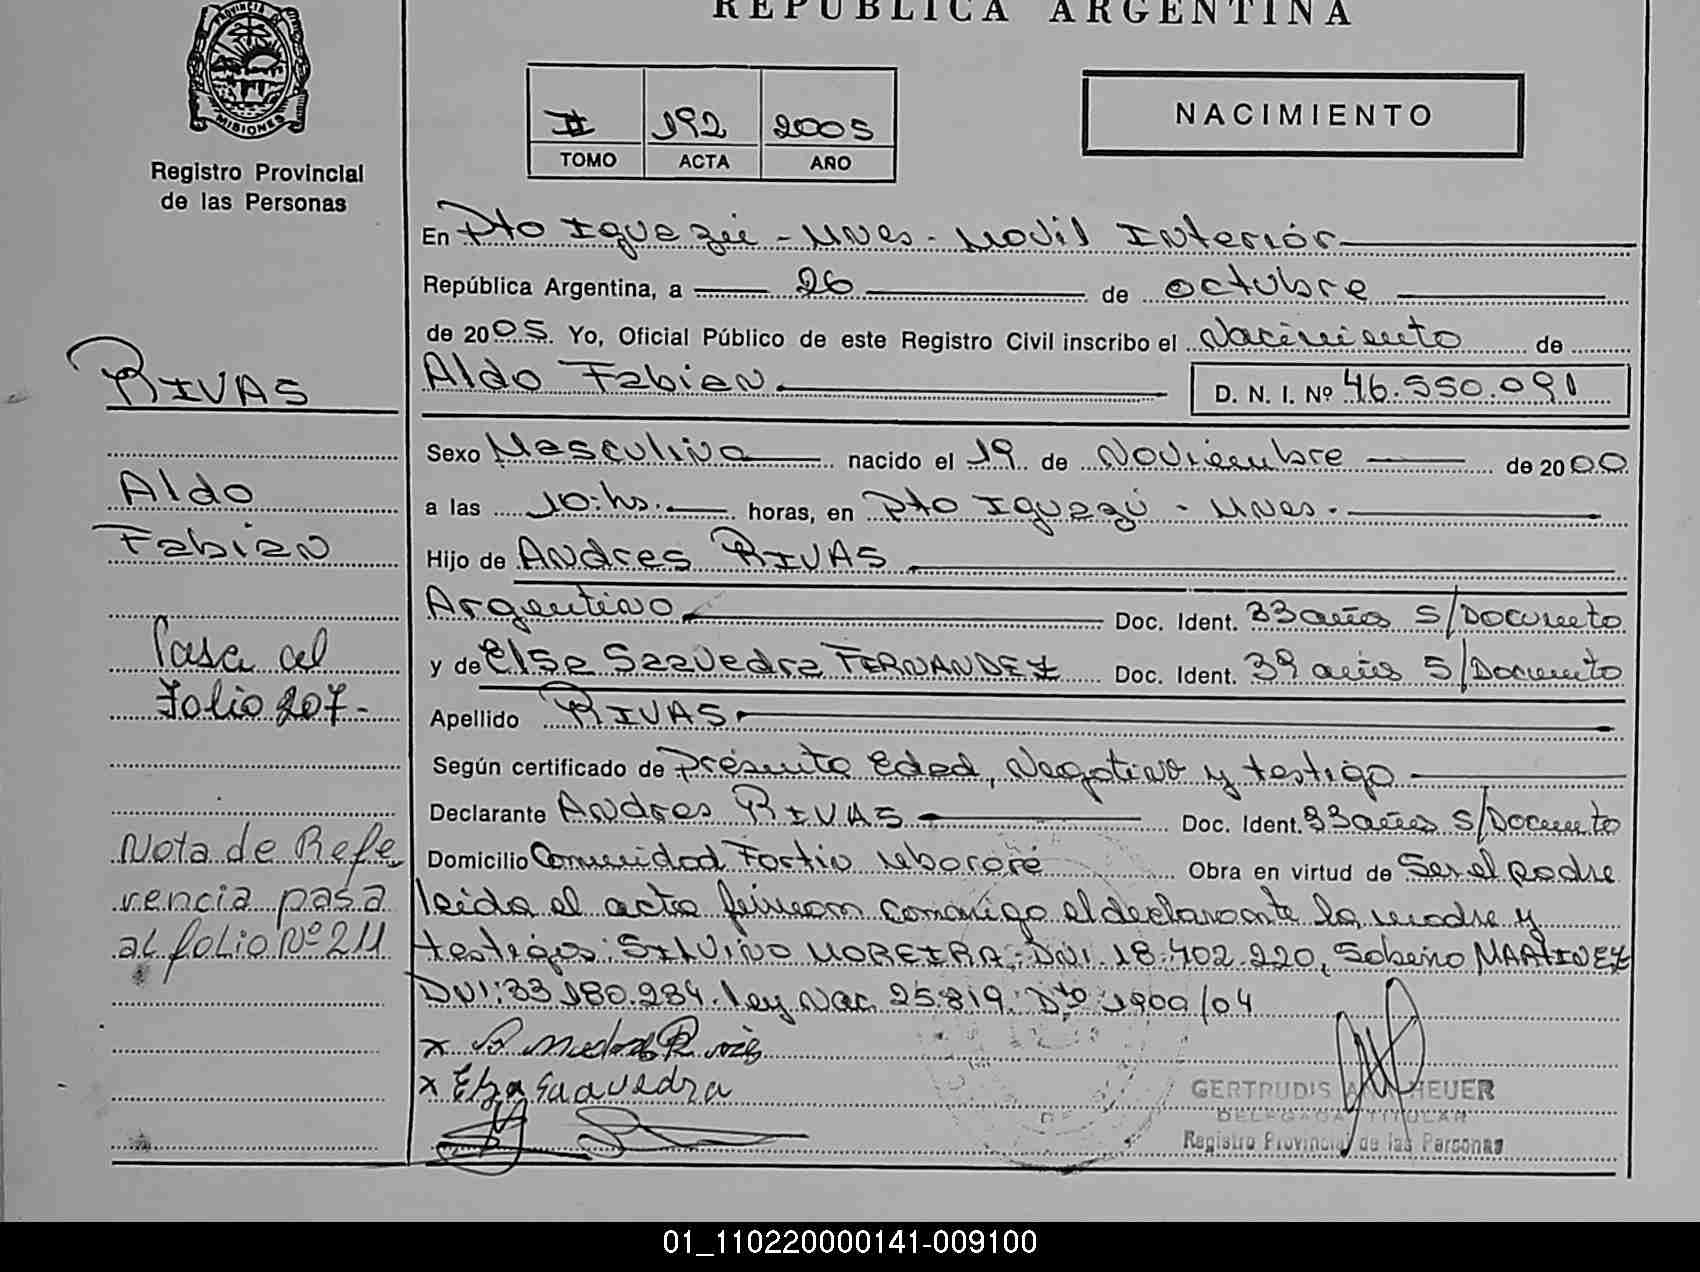 REPUBLICA ARGENTINA
PROVINCIA DE
MISIONES
Registro Provincial
de las Personas
II 192 2005
TOMO ACTA AÑO
NACIMIENTO
En Pto Iguazú - Mnes - Movil Interior
República Argentina, a 26 de octubre
de 2005. Yo, Oficial Público de este Registro Civil inscribo el Nacimiento de
Aldo Fabian D. N. I. Nº 46.550.091
Sexo Masculino nacido el 19 de Noviembre de 2000
a las 10:hs. horas, en Pto Iguazú - Mnes.
Hijo de Andres RIVAS
Argentino Doc. Ident. 33 años S/Documento
y de Elsa Saavedra FERNANDEZ Doc. Ident. 39 años S/Documento
Apellido RIVAS
Según certificado de Presunta Edad, Negativo y testigo
Declarante Andres RIVAS Doc. Ident. 33 años S/Documento
Domicilio Comunidad Fortin Mbororé Obra en virtud de Ser el padre
leida el acta firman conmigo el declarante la madre y
testigos: SILVINO MOREIRA: DNI. 18.402.220, Sabino MARTINEZ
DNI: 33.180.284. ley Nac 25.819. Dto 1900/04
x
x Elza Saavedra
GERTRUDIS HEUER
DELEGADA TITULAR
Registro Provincial de las Personas
RIVAS
Aldo
Fabian
Pasa al
Folio 207-
Nota de Refe
rencia pasa
al folio Nº 211
01_110220000141-009100